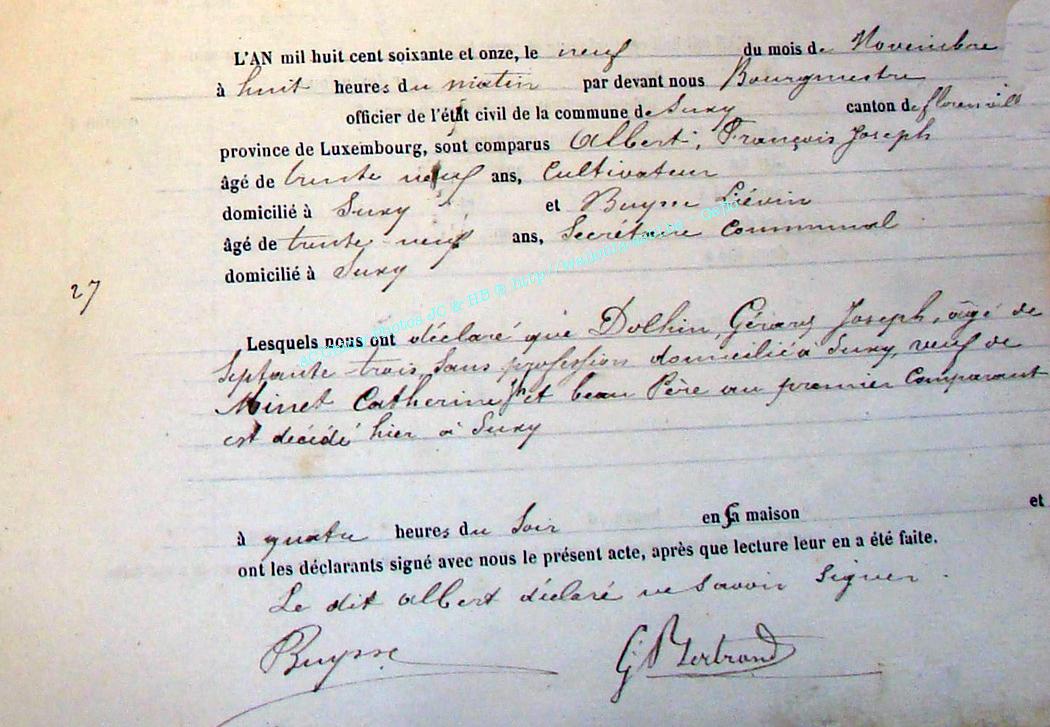 L'AN mil huit cent soixante et onze, le neuf du mois de Novembre
à huit heures du matin par devant nous Bourgmestre
officier de l'état civil de la commune de Suxy canton de florenville
province de Luxembourg, sont comparus Albert, François Joseph
âgé de trente neuf ans, Cultivateur
domicilié à Suxy et Buysse Liévin
âgé de trente-neuf ans, Secrétaire Communal
domicilié à Suxy
27
Lesquels nous ont déclaré que Dolhin, Gérard Joseph, âgé de
Septante trois, Sans profession domicilié à Suxy, veuf de
Minet Catherine et beau Père au premier Comparant
est décédé hier à Suxy
à quatre heures du Soir en sa maison et
ont les déclarants signé avec nous le présent acte, après que lecture leur en a été faite.
Le dit Albert déclaré ne Savoir Signer.
Buysse G Bertrand
Photos JC & HB @ http://